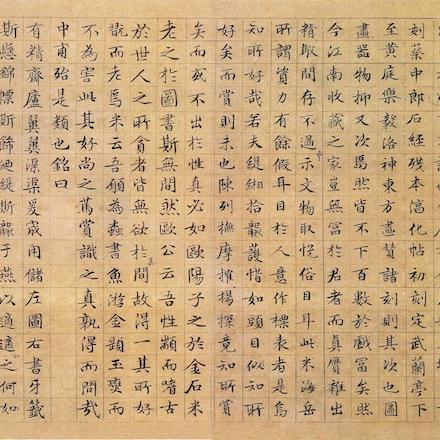 刻蔡中郎石經殘本淳化帖初刻定武蘭亭下
至黃庭樂毅洛神東方畫贊諸刻則其次也圖
畫器物抑又次焉然皆不下百數於戲富矣然
今江南收藏之家豈無富於君者而真贋雜出
精駁間存不過示文物取悅俗目耳此米海岳
所謂資力有餘假耳目於人意作標表者是烏
知所好哉若夫緹緗拾襲護惜如頭目似知所
好矣而賞則未也陳列撫摩摧揚探竟知所賞
矣而或不出於性真必如歐陽子之於金石米
老之於圖書斯無間然歐公云吾性顓而嗜古
於世人之所貪者皆無欲於其間故得一其所好
翫而老焉米云吾願為蠹書魚游金題玉躞而
不為害此其好尚之篤賞識之真孰得而間哉
中甫殆是類也銘曰
有精齋廬翼翼渠渠爰宬用儲左圖右書牙籤
斯懸錦褾斯飾迺緹斯襲于燕以適適之何如